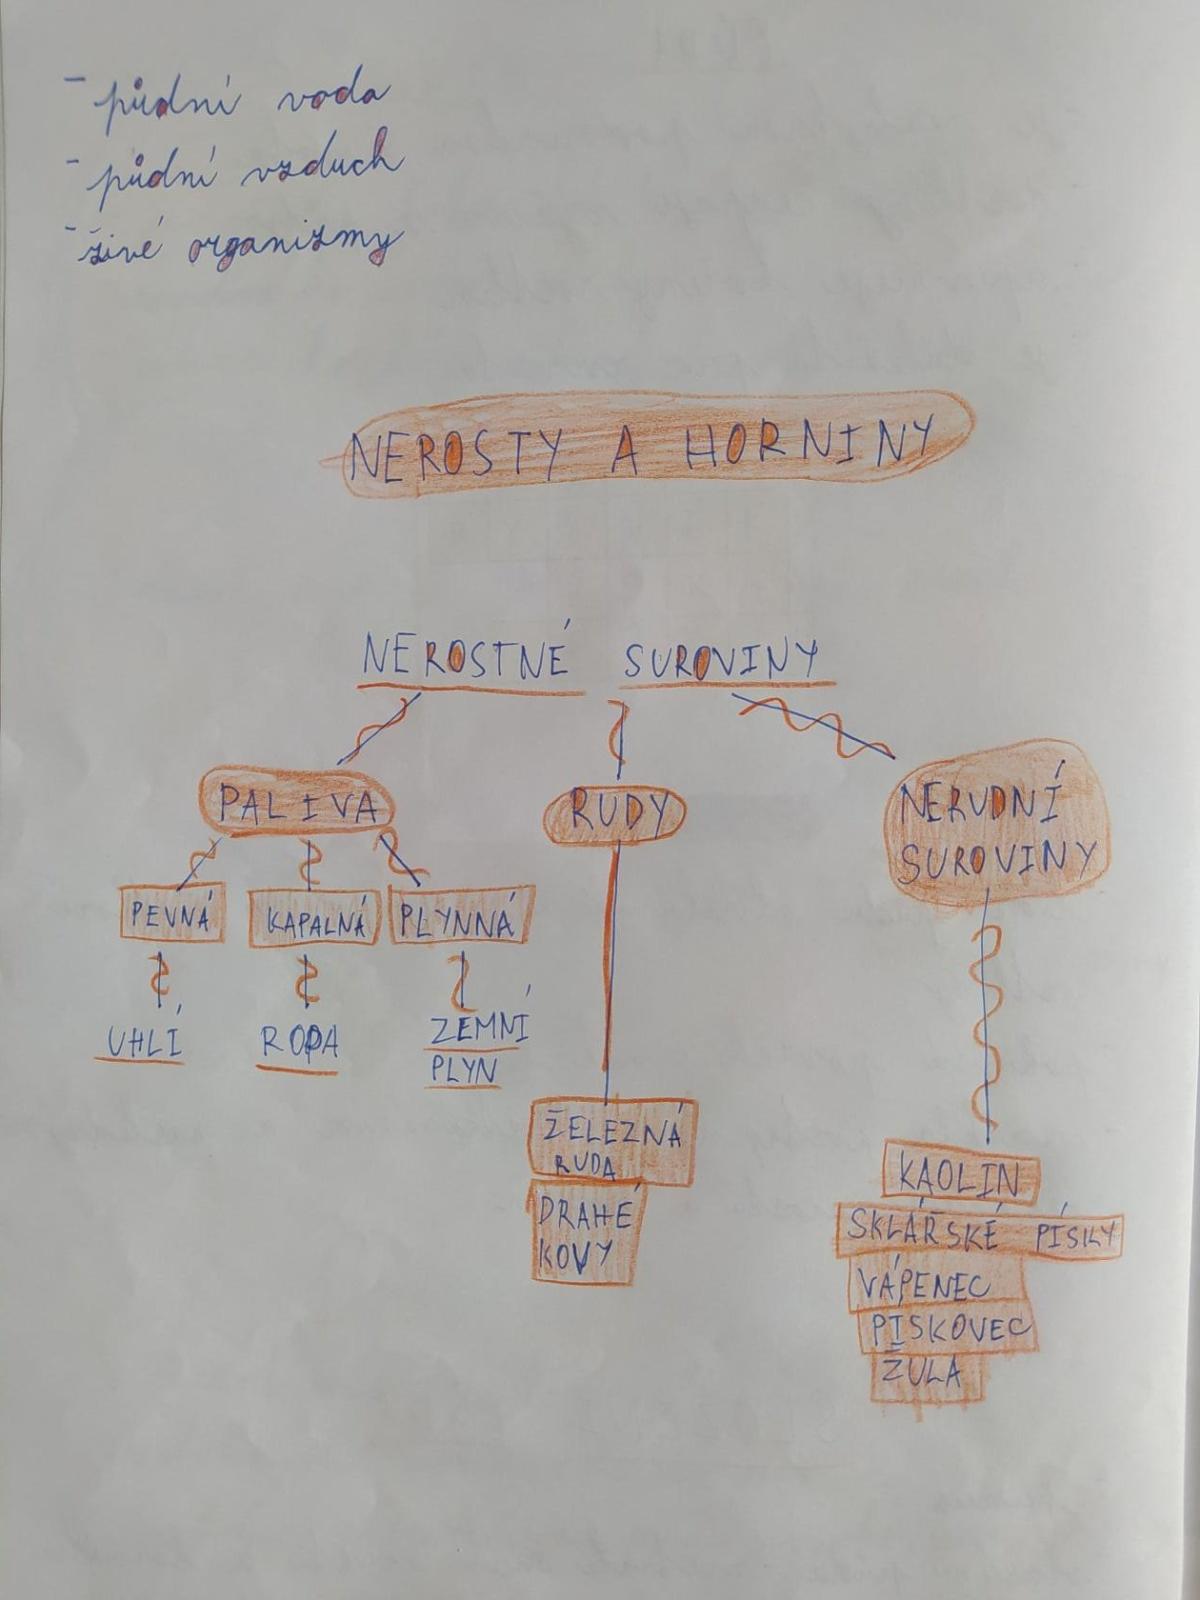 - půdní voda
- půdní vzduch
- živé organizmy
NEROSTY A HORNINY
NEROSTNÉ SUROVINY
PALIVA
RUDY
NERUDNÍ
SUROVINY
PEVNÁ
KAPALNÁ
PLYNNÁ
UHLÍ
ROPA
ZEMNÍ
PLYN
ŽELEZNÁ
RUDA
DRAHÉ
KOVY
KAOLIN
SKLÁŘSKÉ PÍSKY
VÁPENEC
PÍSKOVEC
ŽULA